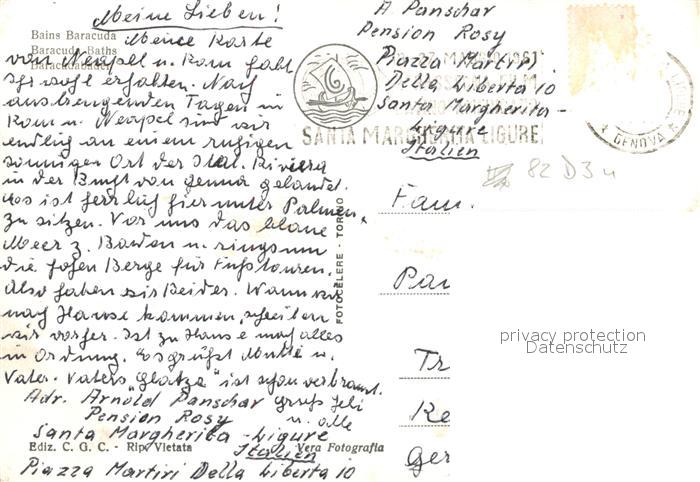 Meine Lieben!
Bains Baracuda
Baracuda Baths
Baracudabäder
Meine Karte
von Neapel u. Rom habt
Ihr wohl erhalten. Nach
anstrengenden Tagen in
Rom u. Neapel sind wir
endlich an einem ruhigen
sonnigen Ort der Ital. Riviera
in der Bucht von Genua gelandet.
Es ist herrlich hier unter Palmen
zu sitzen. Vor uns das blaue
Meer z. Baden u. ringsum
die hohen Berge für Fußtouren.
Also haben wir Beides. Wann wir
nach Hause kommen, schreiben
wir vorher. Ist zu Hause noch alles
in Ordnung. Es grüßt Mutti u.
Vater. Vaters "Glatze" ist schon verbrannt.
Adr. Arnold Panschar Gruß
Pension Rosy u. alle
Santa Margherita - Ligure
Italien
Ediz. C. G. C. - Rip. Vietata Vera Fotografia
Piazza Martiri Della Liberta 10
FOTOCELERE - TORINO
A Panschar
Pension Rosy
Piazza Martiri
Della Liberta 10
Santa Margherita -
Ligure
Italien
SANTA MARGHERITA LIGURE
GENOVA
82 D3
Fam.
Pa
Tr
Ke
Ger
privacy protection
Datenschutz